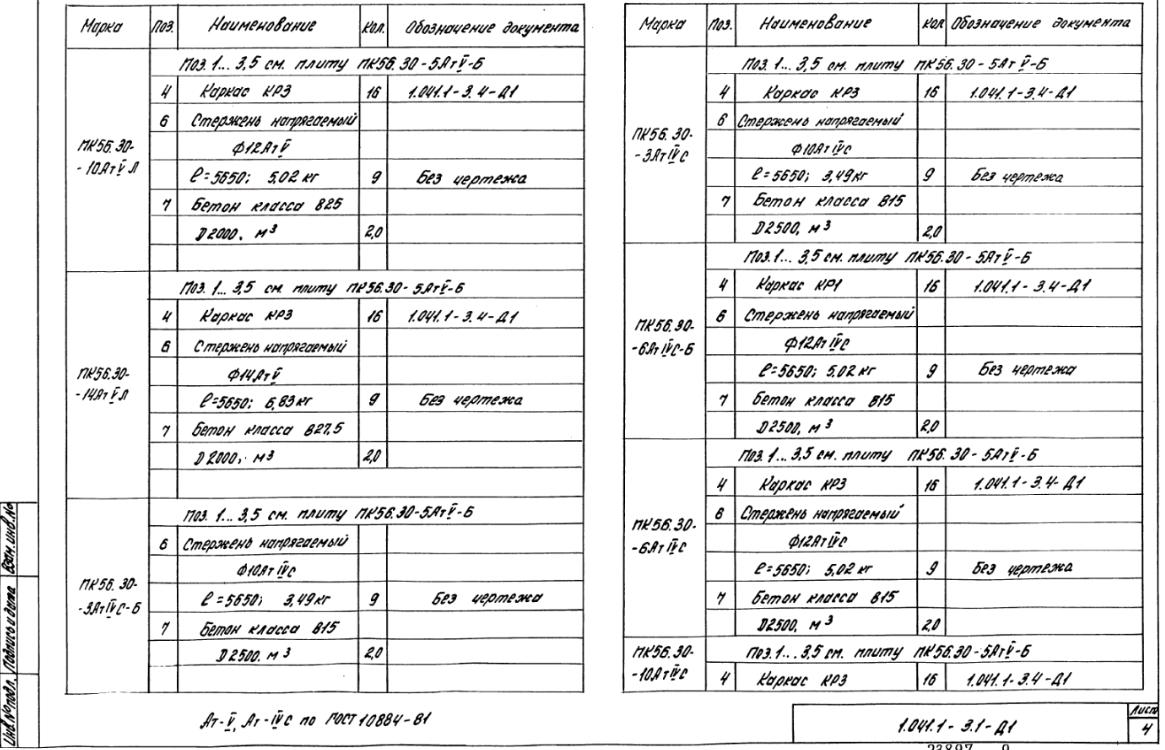 Марка Поз. Наименование Кол. Обозначение документа
Поз. 1... 3,5 см. плиту ПК56.30-5АтV-Б
4 Каркас КР3 16 1.041.1-3.4-Д1
6 Стержень напрягаемый
Ф12АтV
ПК56.30-
-10АтVЛ
ℓ=5650; 5,02 кг 9 Без чертежа
7 Бетон класса В25
D2000, м3 2,0
Поз. 1... 3,5 см. плиту ПК56.30-5АтV-Б
4 Каркас КР3 16 1.041.1-3.4-Д1
6 Стержень напрягаемый
Ф14АтV
ПК56.30-
-14АтVЛ
ℓ=5650; 6,83 кг 9 Без чертежа
7 Бетон класса В27,5
D2000, м3 2,0
Поз. 1... 3,5 см. плиту ПК56.30-5АтV-Б
6 Стержень напрягаемый
Ф10АтIVС
ПК56.30-
-3АтIVС-Б
ℓ=5650; 3,49 кг 9 Без чертежа
7 Бетон класса В15
D2500, м3 2,0
Марка Поз. Наименование Кол Обозначение документа
Поз. 1... 3,5 см. плиту ПК56.30-5АтV-Б
4 Каркас КР3 16 1.041.1-3.4-Д1
6 Стержень напрягаемый
ПК56.30-
-3АтIVС
Ф10АтIVС
ℓ=5650; 3,49 кг 9 Без чертежа
7 Бетон класса В15
D2500, м3 2,0
Поз. 1... 3,5 см. плиту ПК56.30-5АтV-Б
4 Каркас КР1 16 1.041.1-3.4-Д1
6 Стержень напрягаемый
ПК56.30-
-6АтIVС-Б
Ф12АтIVС
ℓ=5650; 5,02 кг 9 Без чертежа
7 Бетон класса В15
D2500, м3 2,0
Поз. 1... 3,5 см. плиту ПК56.30-5АтV-Б
4 Каркас КР3 16 1.041.1-3.4-Д1
6 Стержень напрягаемый
ПК56.30-
-6АтIVС
Ф12АтIVС
ℓ=5650; 5,02 кг 9 Без чертежа
7 Бетон класса В15
D2500, м3 2,0
ПК56.30-
-10АтIVС
Поз. 1... 3,5 см. плиту ПК56.30-5АтV-Б
4 Каркас КР3 16 1.041.1-3.4-Д1
Ат-V, Ат-IVС по ГОСТ 10884-81
1.041.1-3.1-Д1
Лист
4
23897 9
Инв.№подл. Подпись и дата Взам.инв.№